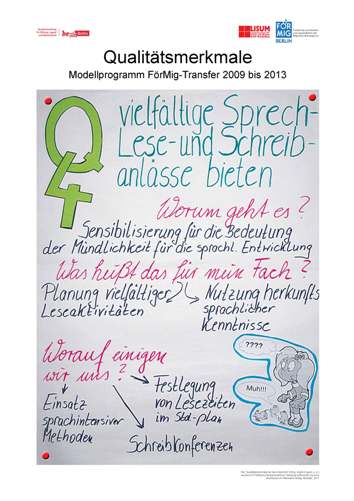 be Berlin
LISUM
FÖR
MIG
BERLIN
Qualitätsmerkmale
Modellprogramm FörMig-Transfer 2009 bis 2013
Q4
vielfältige Sprech-
Lese- und Schreib-
anlässe bieten
Worum geht es?
Sensibilisierung für die Bedeutung
der Mündlichkeit für die sprachl. Entwicklung
Was heißt das für mein Fach?
Planung vielfältiger
Leseaktivitäten
Nutzung herkunfts
sprachlicher
Kenntnisse
Worauf einigen
wir uns?
Einsatz
sprachintensiver
Methoden
Festlegung
von Lesezeiten
im Std-plan
Schreibkonferenzen
????
Muh!!!